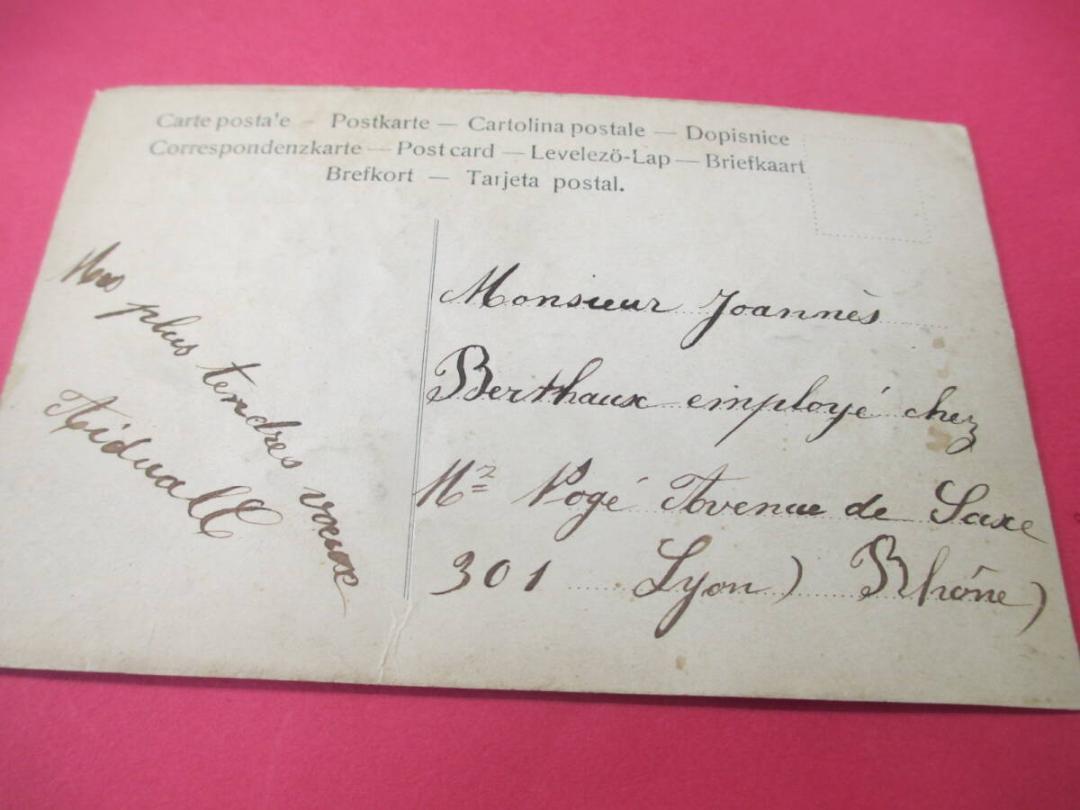 Carte posta'e – Postkarte — Cartolina postale — Dopisnice
Correspondenzkarte — Postcard — Levelező-Lap — Briefkaart
Brefkort — Tarjeta postal.
Mes plus tendres vœux
Monsieur Joannès
Berthaux employé chez
Mr Pogé Avenue de Saxe
301 Lyon) Rhône)